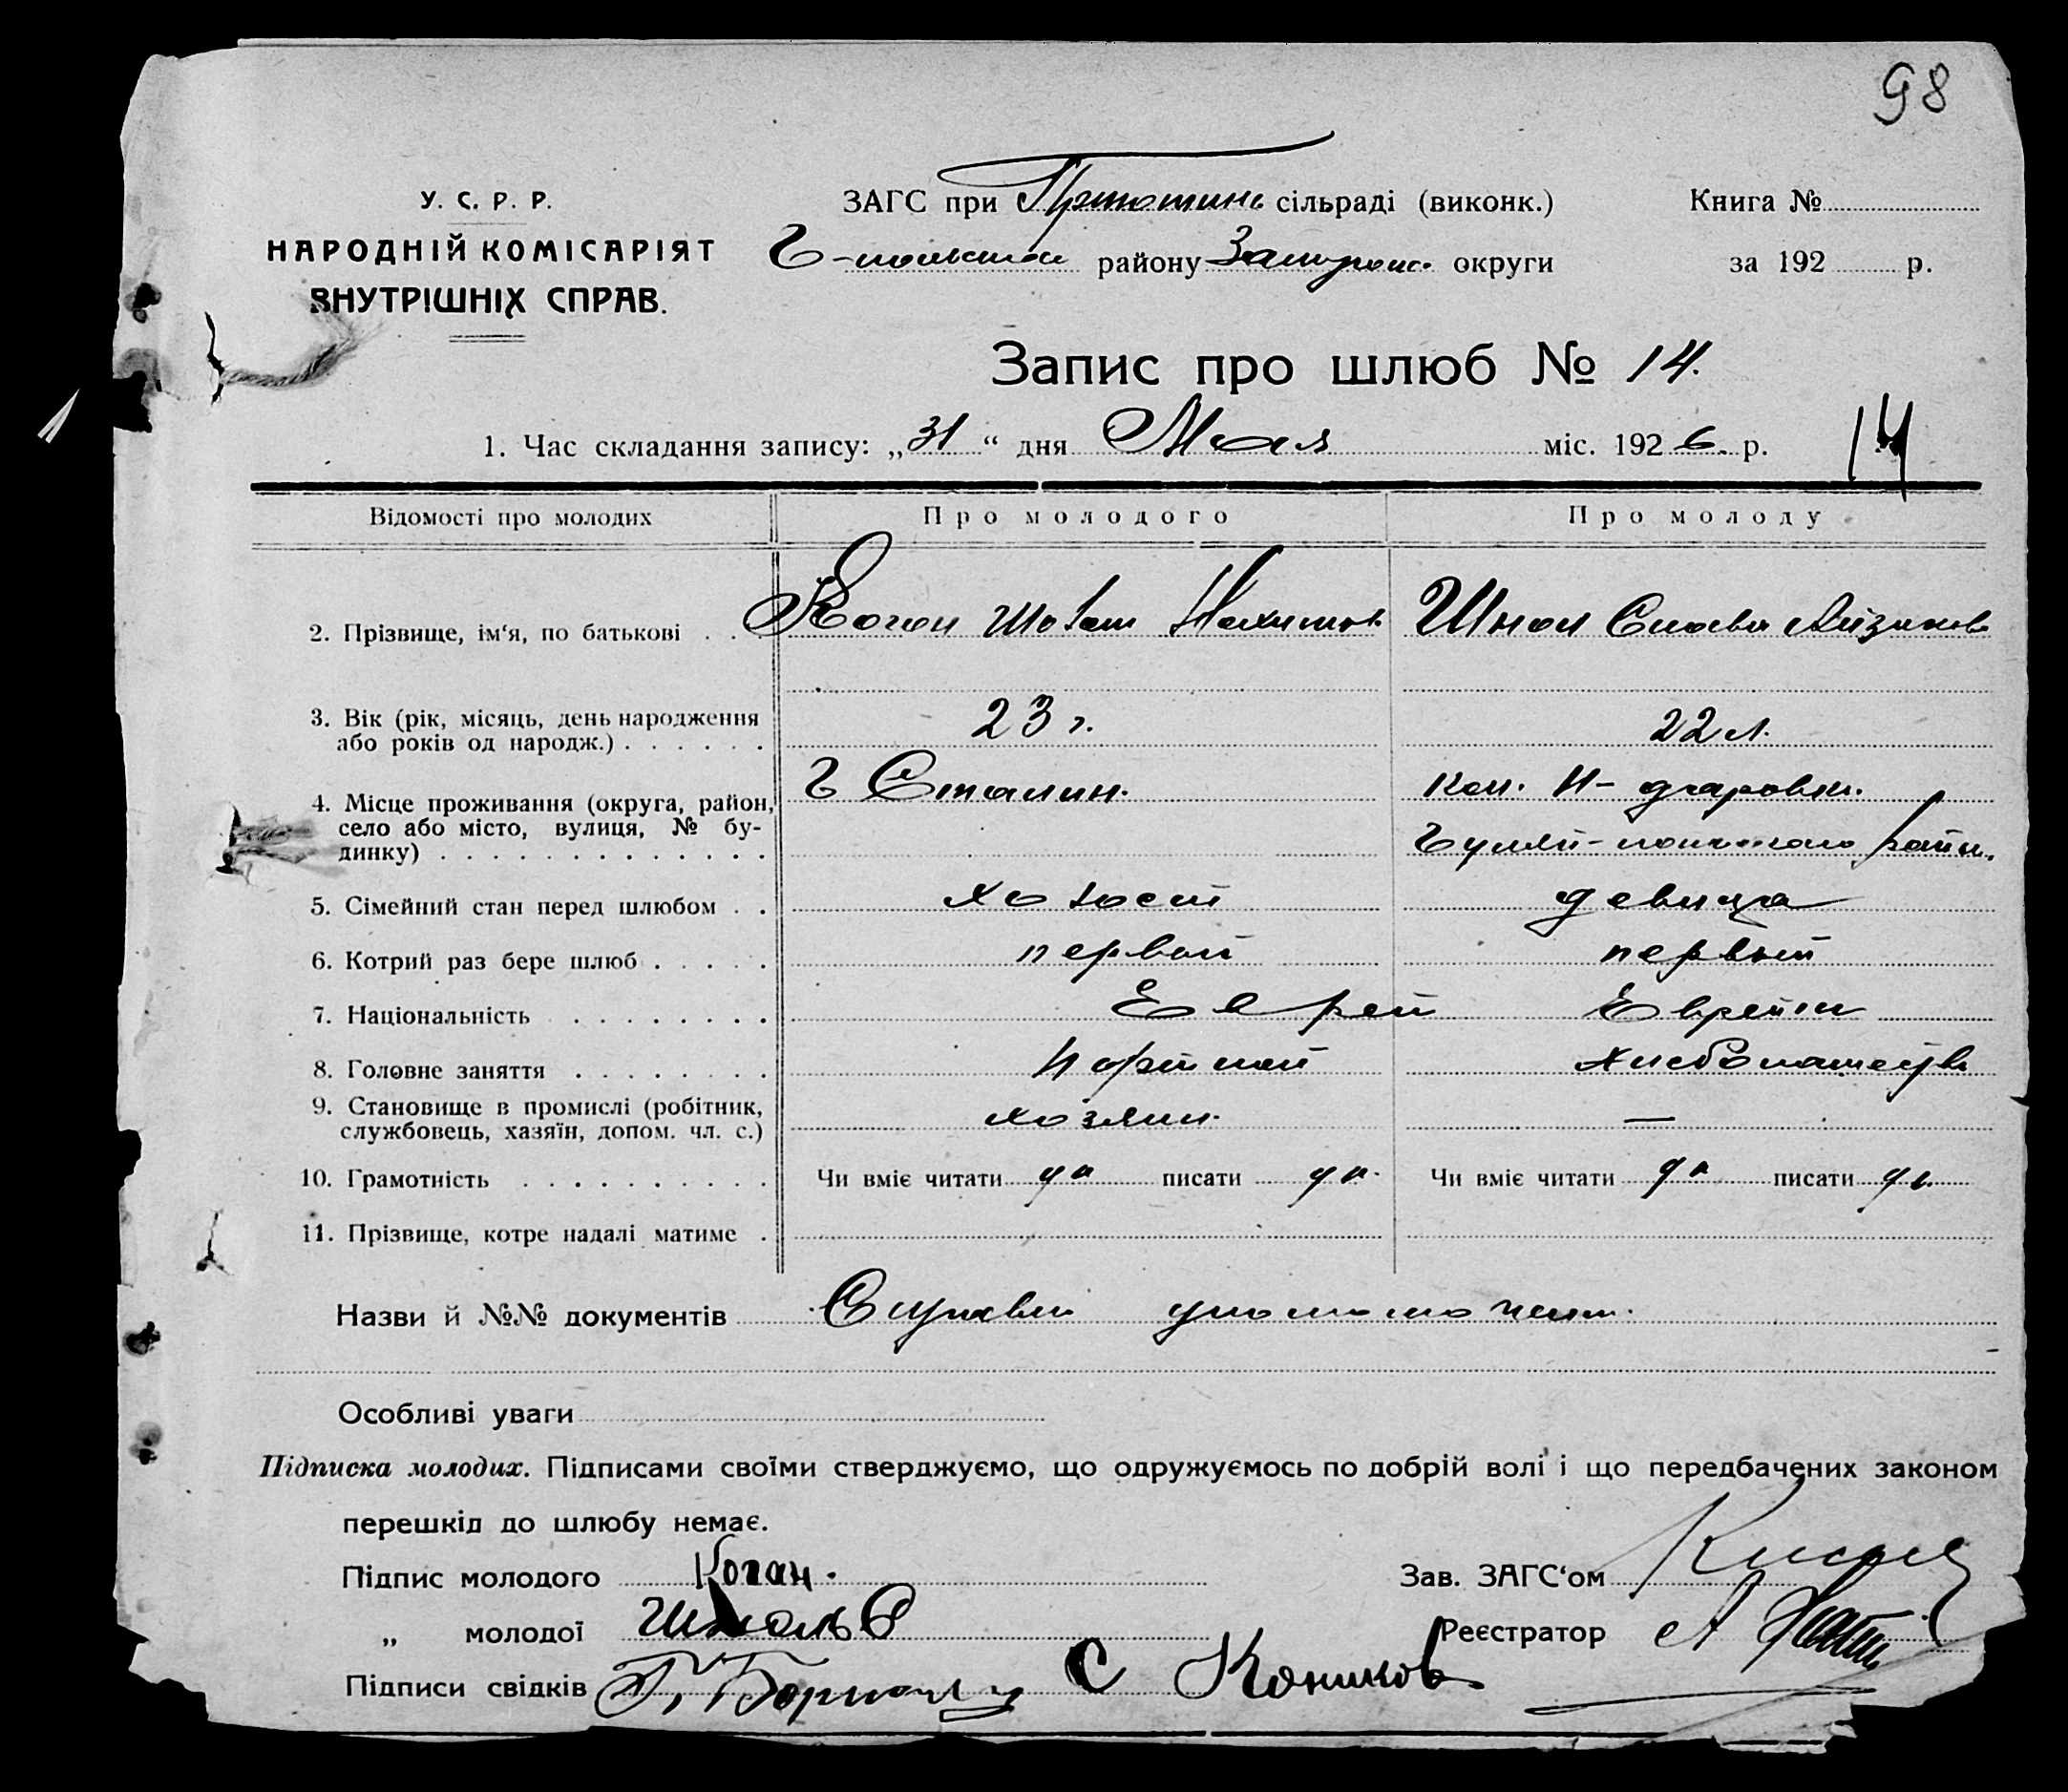 98
У. С. Р. Р.
НАРОДНІЙ КОМІСАРІЯТ
ВНУТРІШНІХ СПРАВ.
ЗАГС при сільраді (виконк.)
району Запорож. округи
Книга №
за 192 р.
Запис про шлюб № 14.
1. Час складання запису: „31“ дня Мая міс. 1926. р.
14
Відомості про молодих Про молодого Про молоду
2. Прізвище, ім‘я, по батькові . . . Коган Нахимов Шнол Слава Айзиков
3. Вік (рік, місяць, день народження
або років од народж.) . . . . . . 23 г. 22 л.
4. Місце проживання (округа, район, г Сталин. кол. Н-
село або місто, вулиця, № бу-
динку) . . . . . . . . . . . . . Гуляй-польского район.
5. Сімейний стан перед шлюбом . . холост девица
6. Котрий раз бере шлюб . . . . . первый первый
7. Національність . . . . . . . . Еврей Еврейка
8. Головне заняття . . . . . . . . портной хлебопашество
9. Становище в промислі (робітник, хозяин. —
службовець, хазяїн, допом. чл. с.)
10. Грамотність . . . . . . . . . . Чи вміє читати да писати да. Чи вміє читати да писати да
11. Прізвище, котре надалі матиме .
Назви й №№ документів Справки
Особливі уваги
Підписка молодих. Підписами своїми стверджуємо, що одружуємось по добрій волі і що передбачених законом
перешкід до шлюбу немає.
Підпис молодого Коган. Зав. ЗАГС‘ом
„ молодої Шноль С Реєстратор А
Підписи свідків С Коников